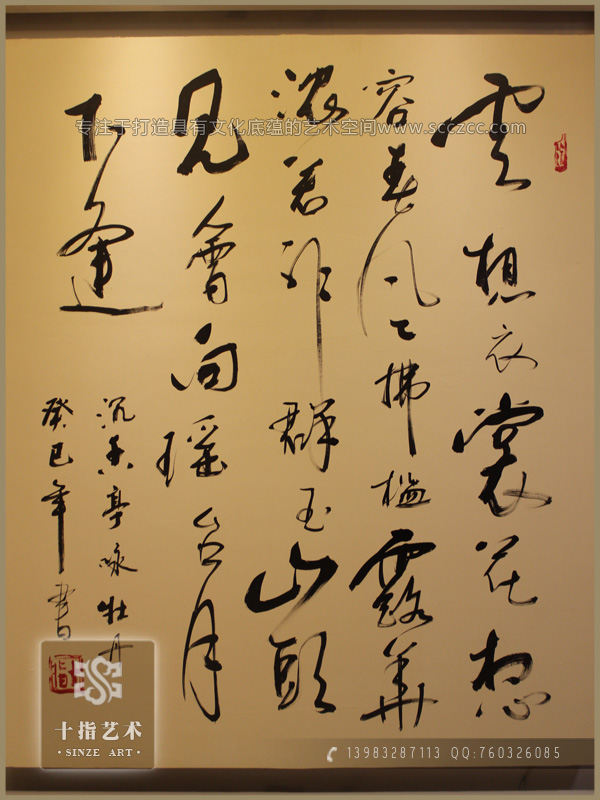 雲想衣裳花想
容春风〻拂槛露華
濃若非群玉山頭
见會向瑶台月
下逢
沉香亭咏牡丹
癸巳年書
专注于打造具有文化底蕴的艺术空间www.scczcc.com
十指艺术
·SINZE ART·
13983287113 QQ:760326085